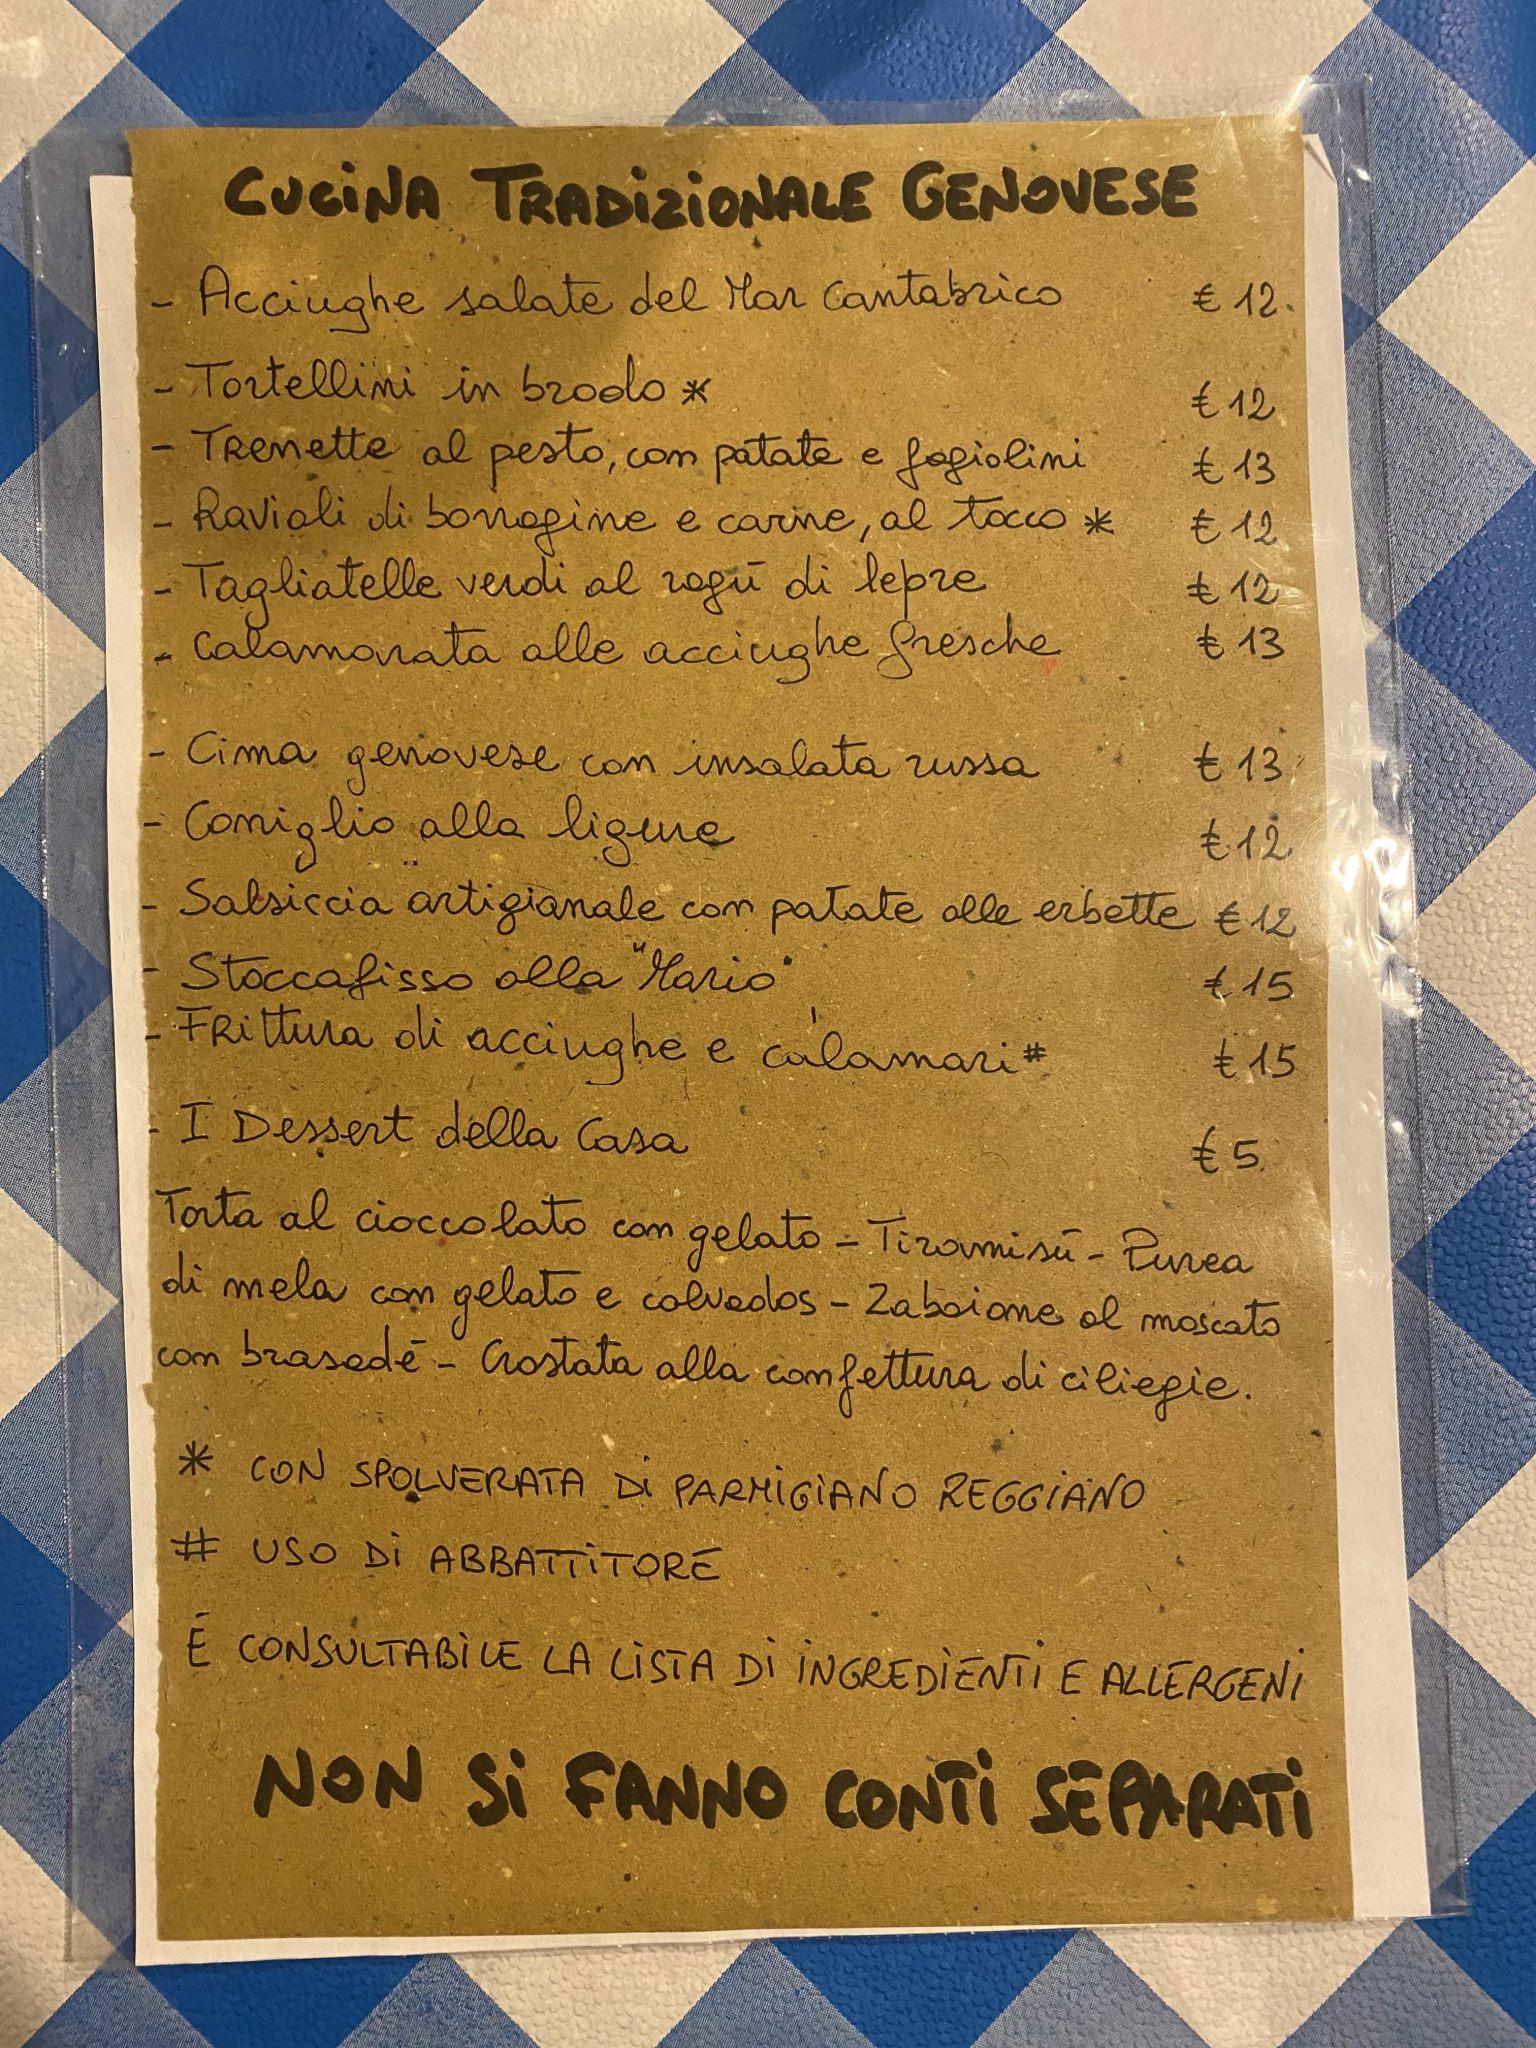 CUCINA TRADIZIONALE GENOVESE
- Acciughe salate del Mar Cantabrico € 12.
- Tortellini in brodo * € 12
- Trenette al pesto, con patate e fagiolini € 13
- Ravioli di borragine e carne, al tocco * € 12
- Tagliatelle verdi al ragù di lepre € 12
- Calamarata alle acciughe fresche € 13
- Cima genovese con insalata russa € 13
- Coniglio alla ligure € 12
- Salsiccia artigianale con patate alle erbette € 12
- Stoccafisso alla "Mario" € 15
- Frittura di acciughe e calamari # € 15
- I Dessert della Casa € 5
Torta al cioccolato con gelato - Tiramisù - Purea
di mela con gelato e calvados - Zabaione al moscato
con brasadé - Crostata alla confettura di ciliegie.
* CON SPOLVERATA DI PARMIGIANO REGGIANO
# USO DI ABBATTITORE
É CONSULTABILE LA LISTA DI INGREDIENTI E ALLERGENI
NON SI FANNO CONTI SEPARATI